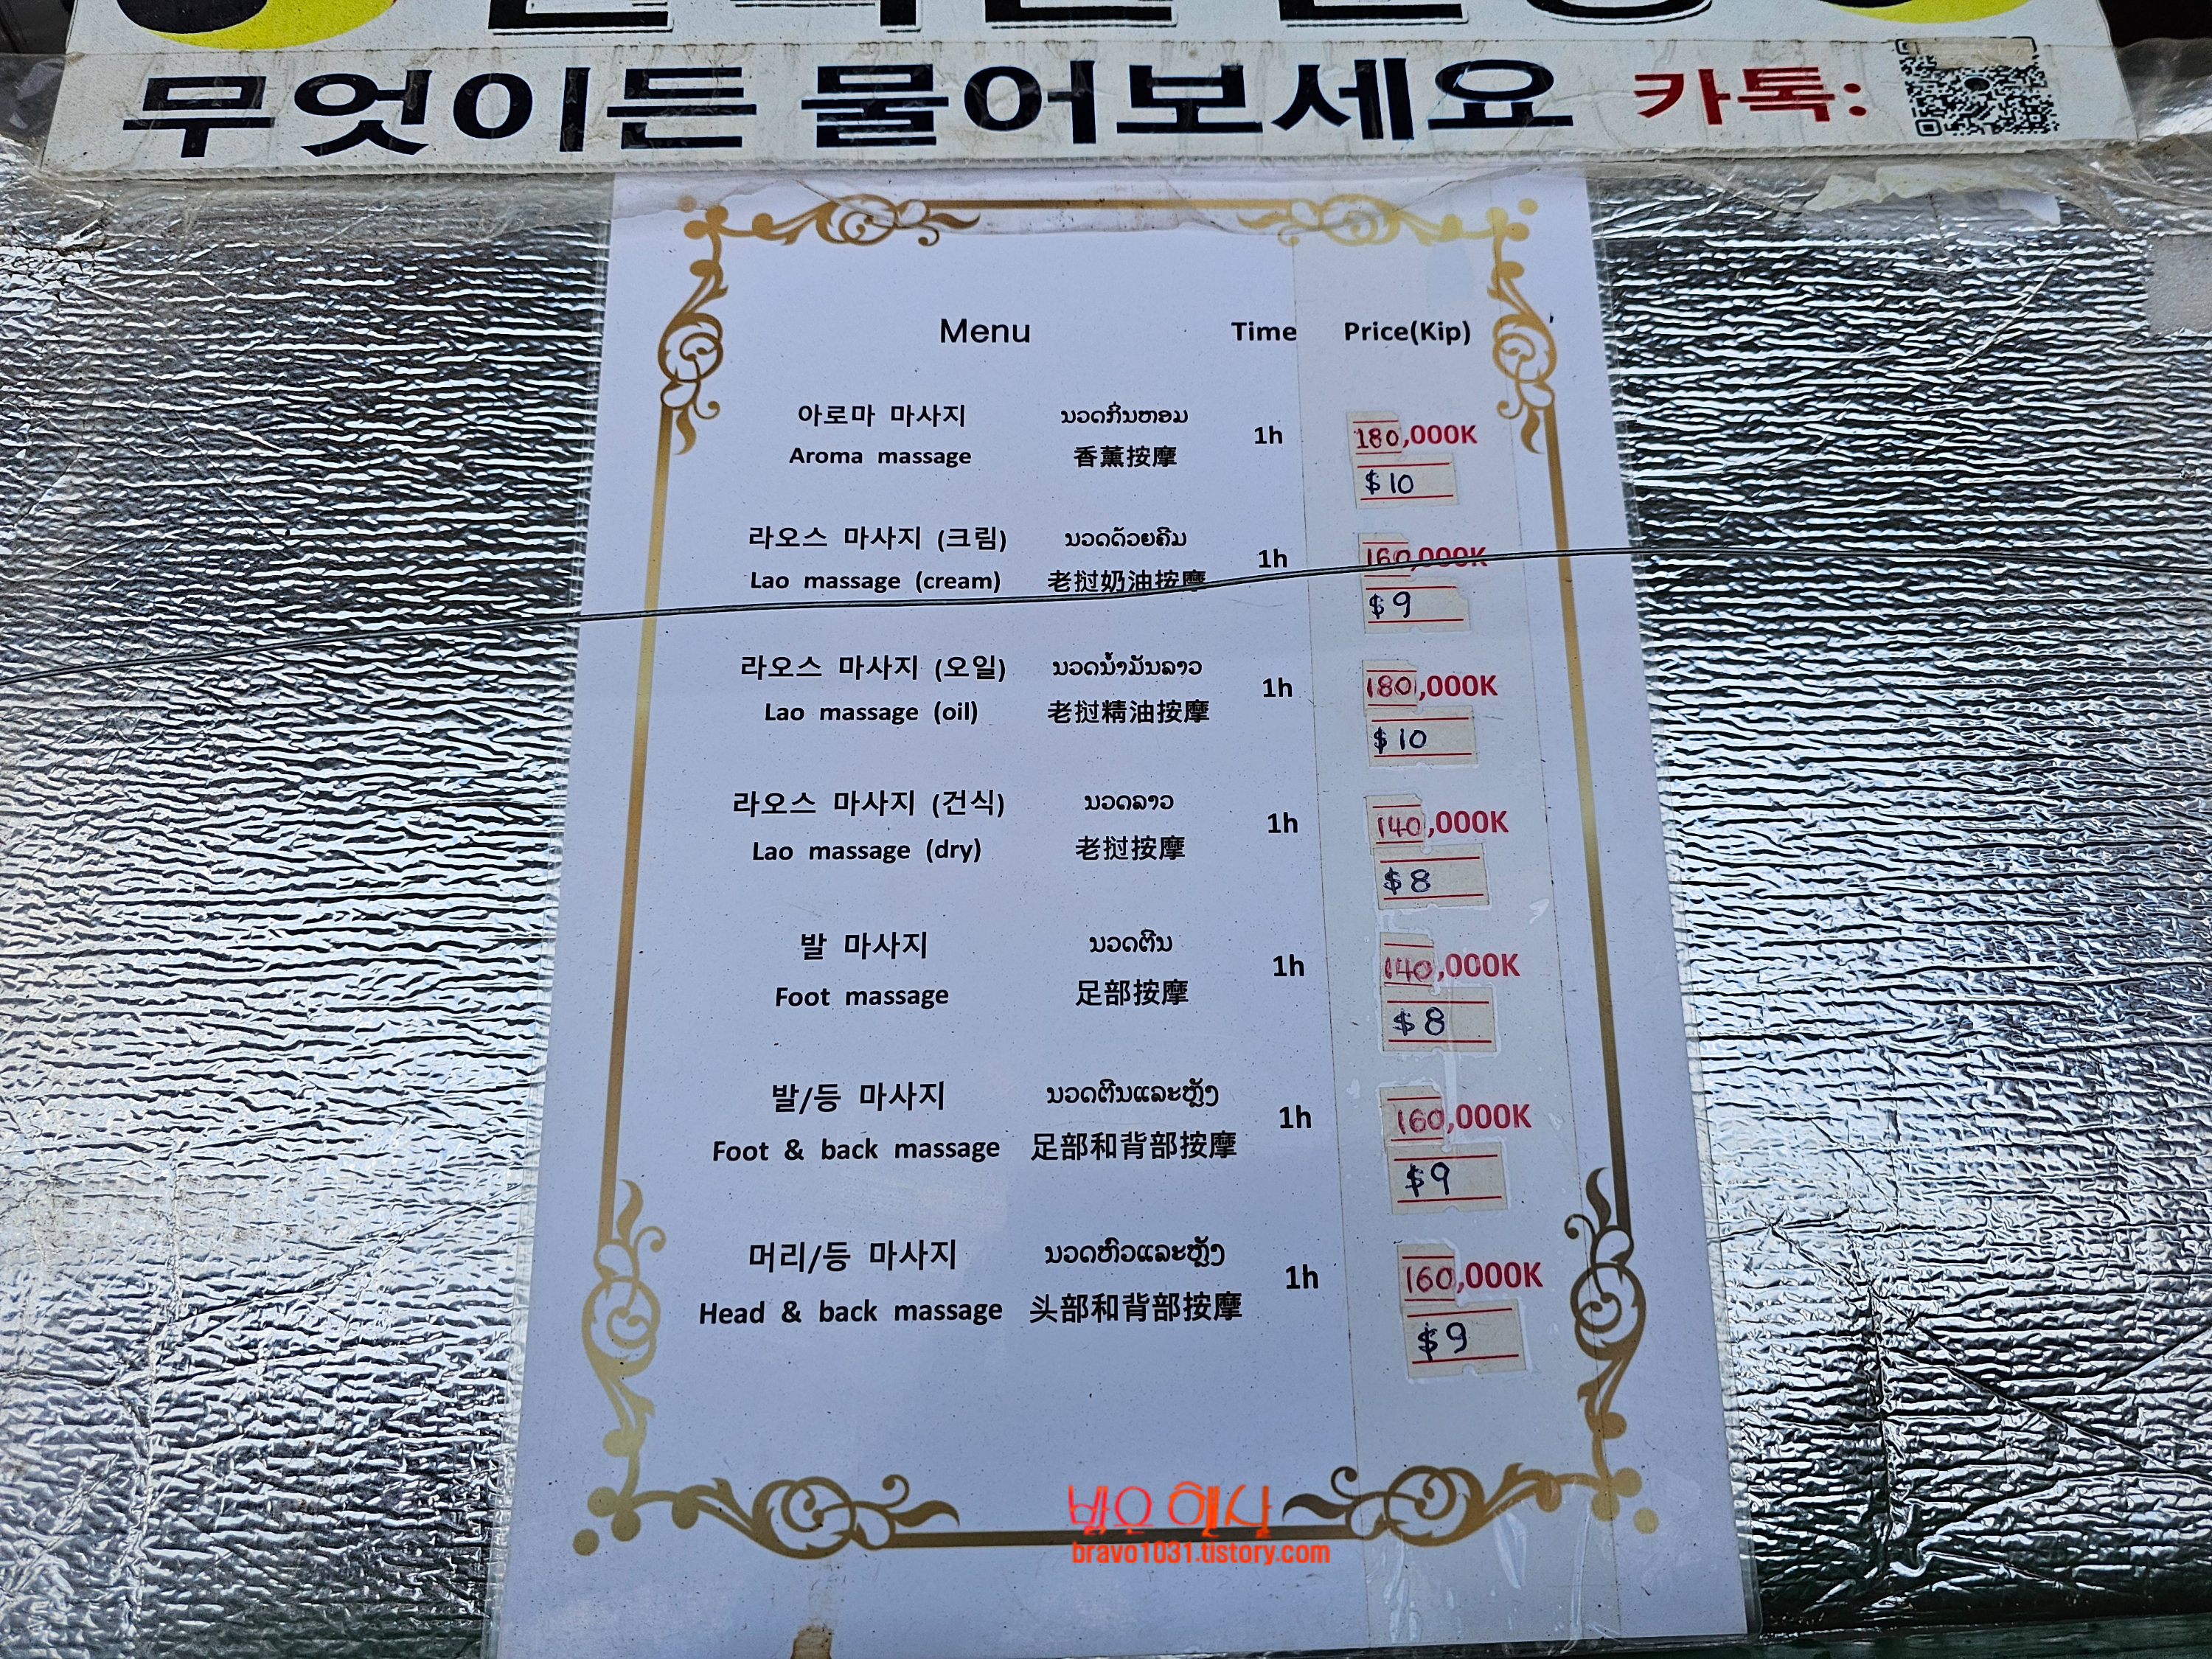 무엇이든 물어보세요 카톡:
Menu Time Price(Kip)
아로마 마사지 ນວດກິ່ນຫອມ
Aroma massage 香薰按摩 1h 180,000K
$10
라오스 마사지 (크림) ນວດດ້ວຍຄີມ
Lao massage (cream) 老挝奶油按摩 1h 160,000K
$9
라오스 마사지 (오일) ນວດນ້ຳມັນລາວ
Lao massage (oil) 老挝精油按摩 1h 180,000K
$10
라오스 마사지 (건식) ນວດລາວ
Lao massage (dry) 老挝按摩 1h 140,000K
$8
발 마사지 ນວດຕີນ
Foot massage 足部按摩 1h 140,000K
$8
발/등 마사지 ນວດຕີນແລະຫຼັງ
Foot & back massage 足部和背部按摩 1h 160,000K
$9
머리/등 마사지 ນວດຫົວແລະຫຼັງ
Head & back massage 头部和背部按摩 1h 160,000K
$9
bravo1031.tistory.com